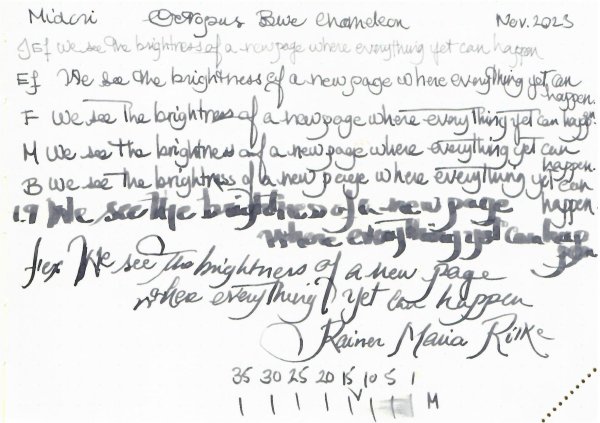 Midori Octopus Blue Chameleon Nov. 2023
JEf We see the brightness of a new page where everything yet can happen
Ef We see the brightness of a new page where everything yet can
happen.
F We see the brightness of a new page where everything yet can happen
M We see the brightness of a new page where everything yet can
happen.
B We see the brightness of a new page where everything yet can
happen.
1.9 We see the brightness of a new page
where everything yet can happen
flex We see the brightness of a new page
where everything yet can happen
Rainer Maria Rilke
35 30 25 20 15 10 5 1
M